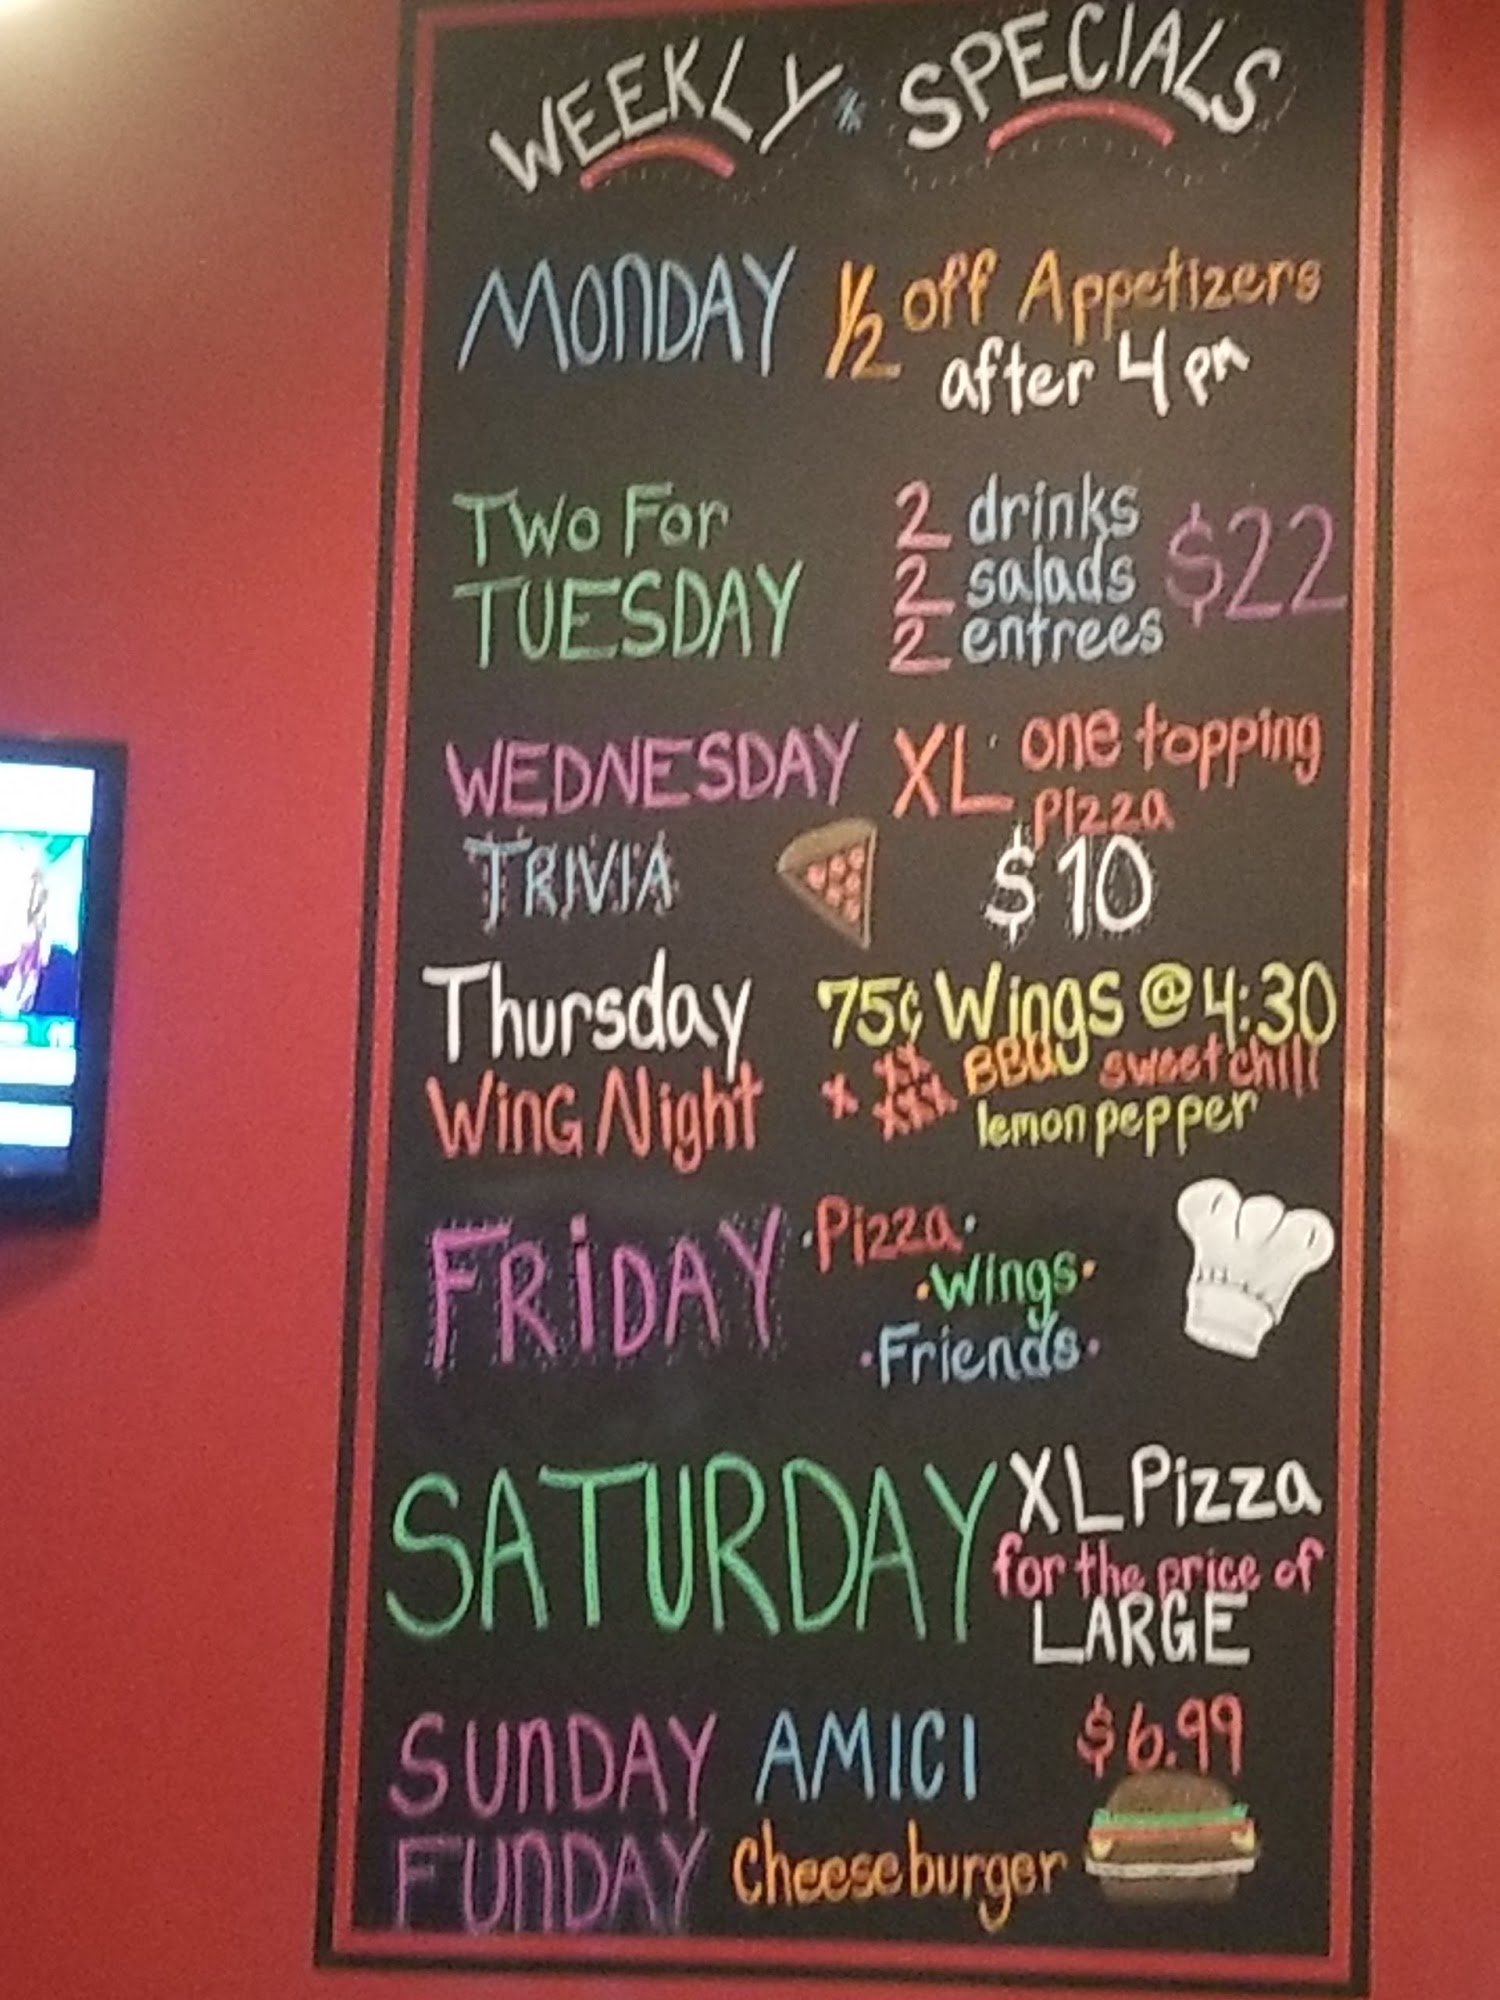 WEEKLY SPECIALS
MONDAY ½ off Appetizers
after 4 pm
TWO FOR
TUESDAY
2 drinks
2 salads
2 entrees
$22
WEDNESDAY
TRIVIA
XL one topping
pizza
$10
Thursday
WING Night
75¢ Wings @ 4:30
x xx xxx BBQ sweet chili
lemon pepper
FRIDAY
·Pizza·
·Wings·
·Friends·
SATURDAY
XL Pizza
for the price of
LARGE
SUNDAY
FUNDAY
AMICI
Cheeseburger
$6.99